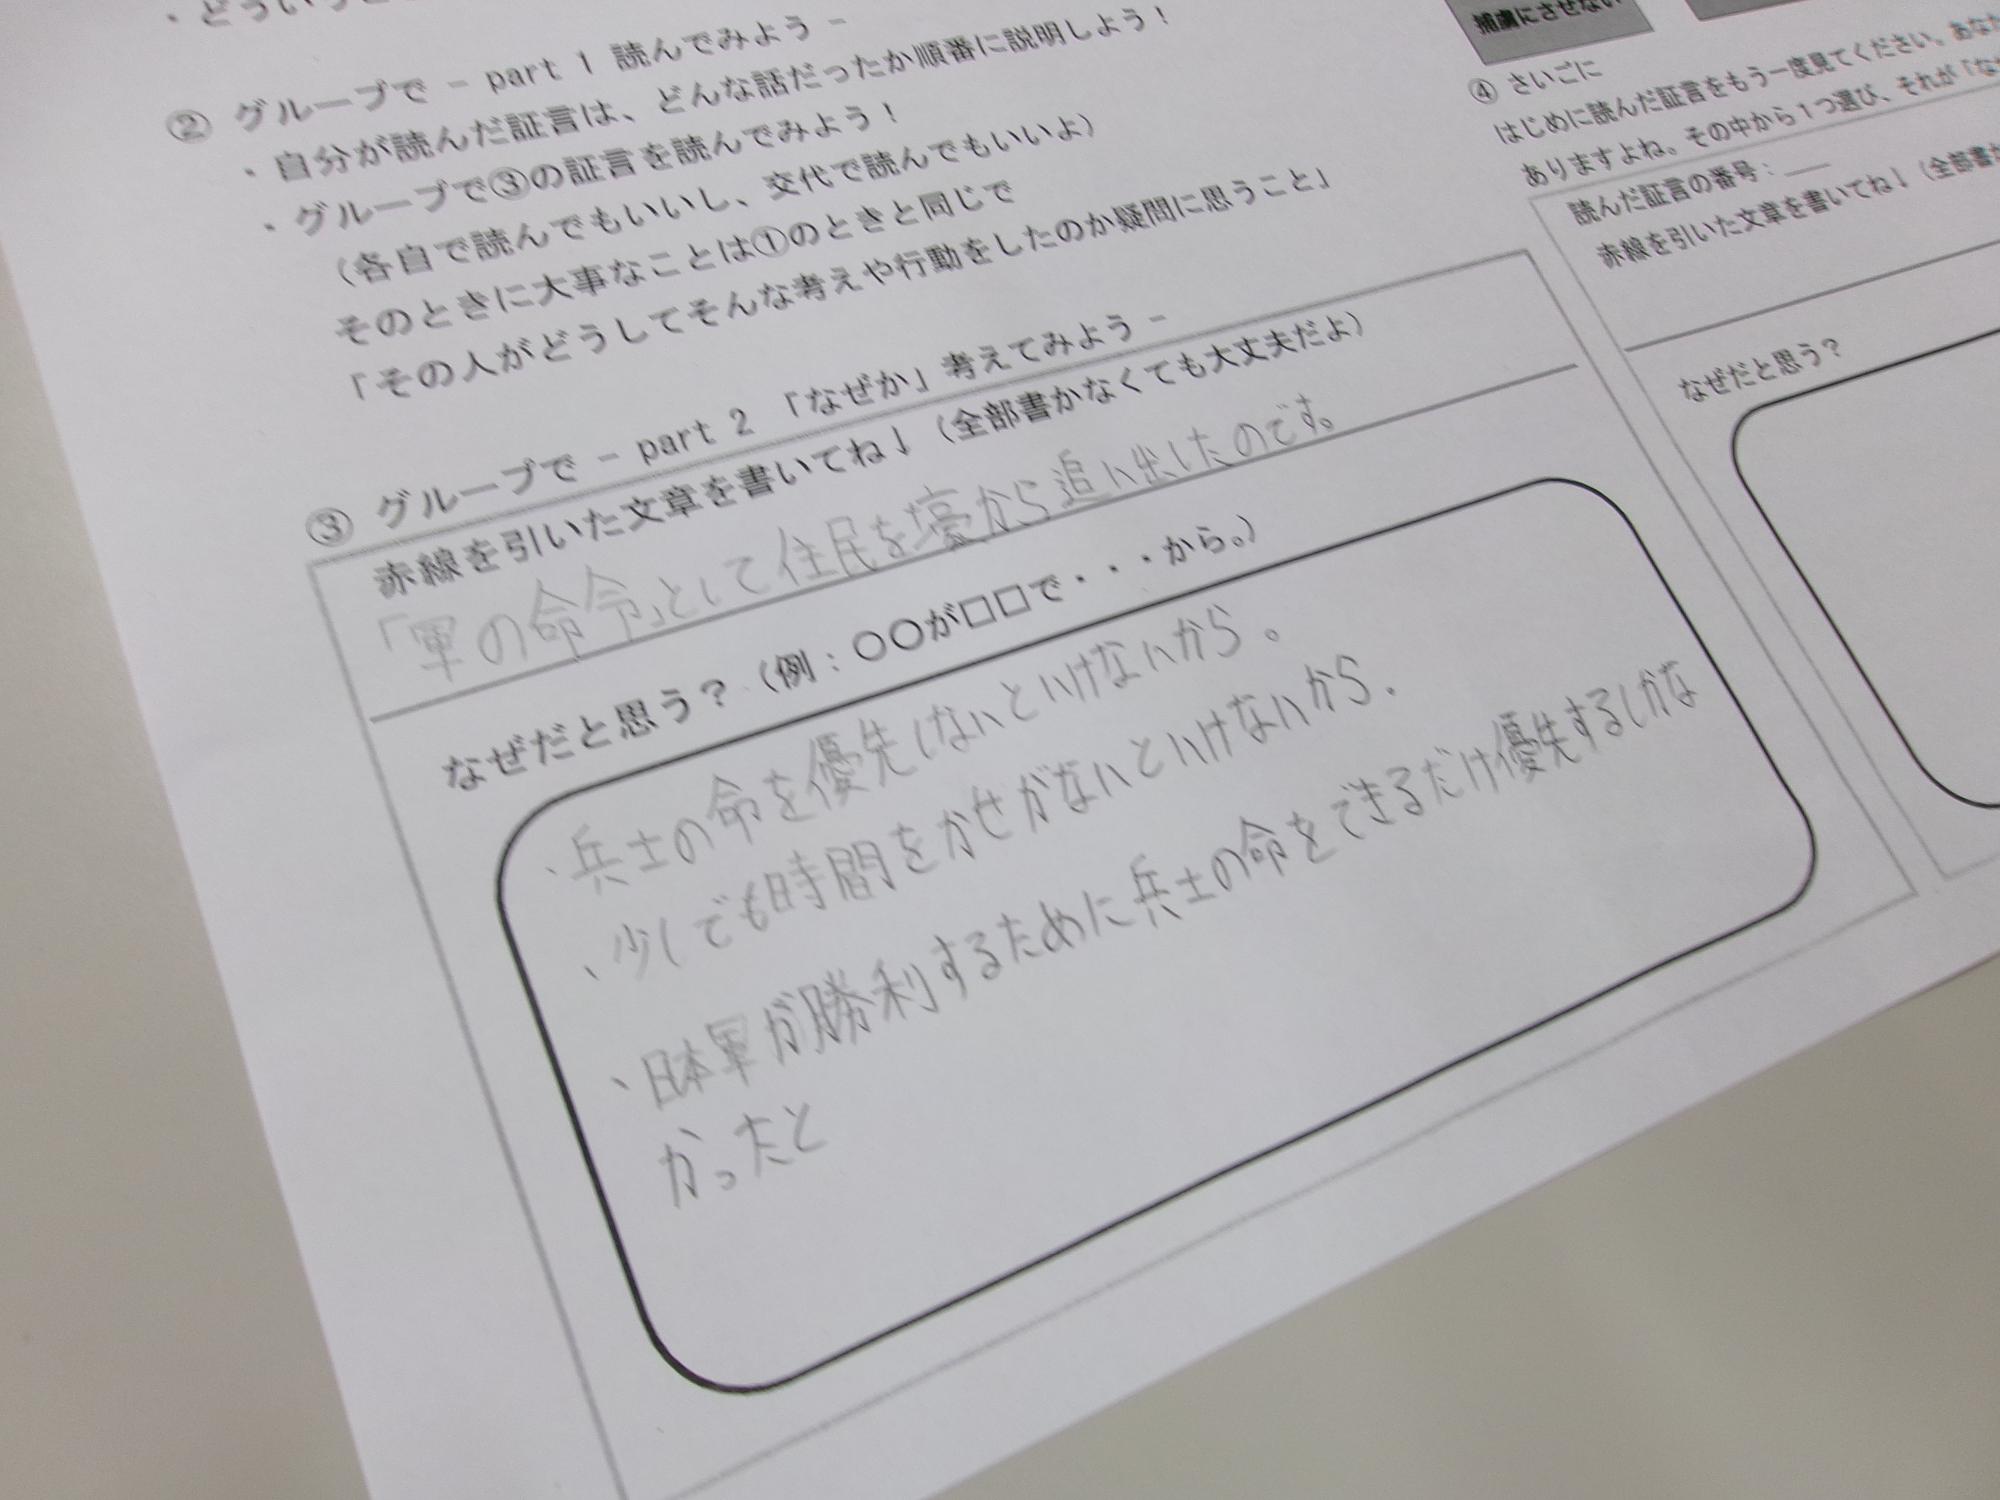 ・どういうこと
② グループで - part 1 読んでみよう -
・自分が読んだ証言は、どんな話だったか順番に説明しよう！
・グループで③の証言を読んでみよう！
（各自で読んでもいいし、交代で読んでもいいよ）
そのときに大事なことは①のときと同じで
「その人がどうしてそんな考えや行動をしたのか疑問に思うこと」
③ グループで - part 2 「なぜか」考えてみよう -
赤線を引いた文章を書いてね↓（全部書かなくても大丈夫だよ）
「軍の命令」として住民を壕から追い出したのです。
なぜだと思う？（例：〇〇が□□で・・・から。）
・兵士の命を優先しないといけないから。
、少しでも時間をかせがないといけないから.
、日本軍が勝利するために兵士の命をできるだけ優先するしかな
かったと
捕虜にさせない
④ さいごに
はじめに読んだ証言をもう一度見てください。あなた
ありますよね。その中から1つ選び、それが「なぜ
読んだ証言の番号：
赤線を引いた文章を書いてね↓（全部書か
なぜだと思う？